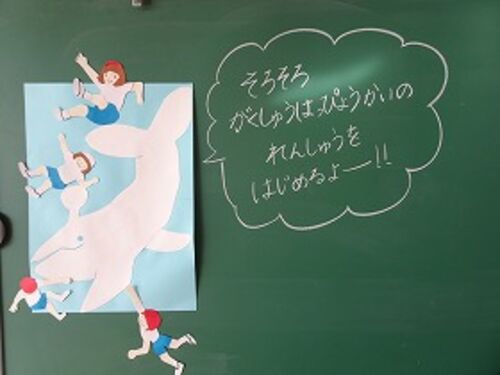 そろそろ
がくしゅうはっぴょうかいの
れんしゅうを
はじめるよー!!